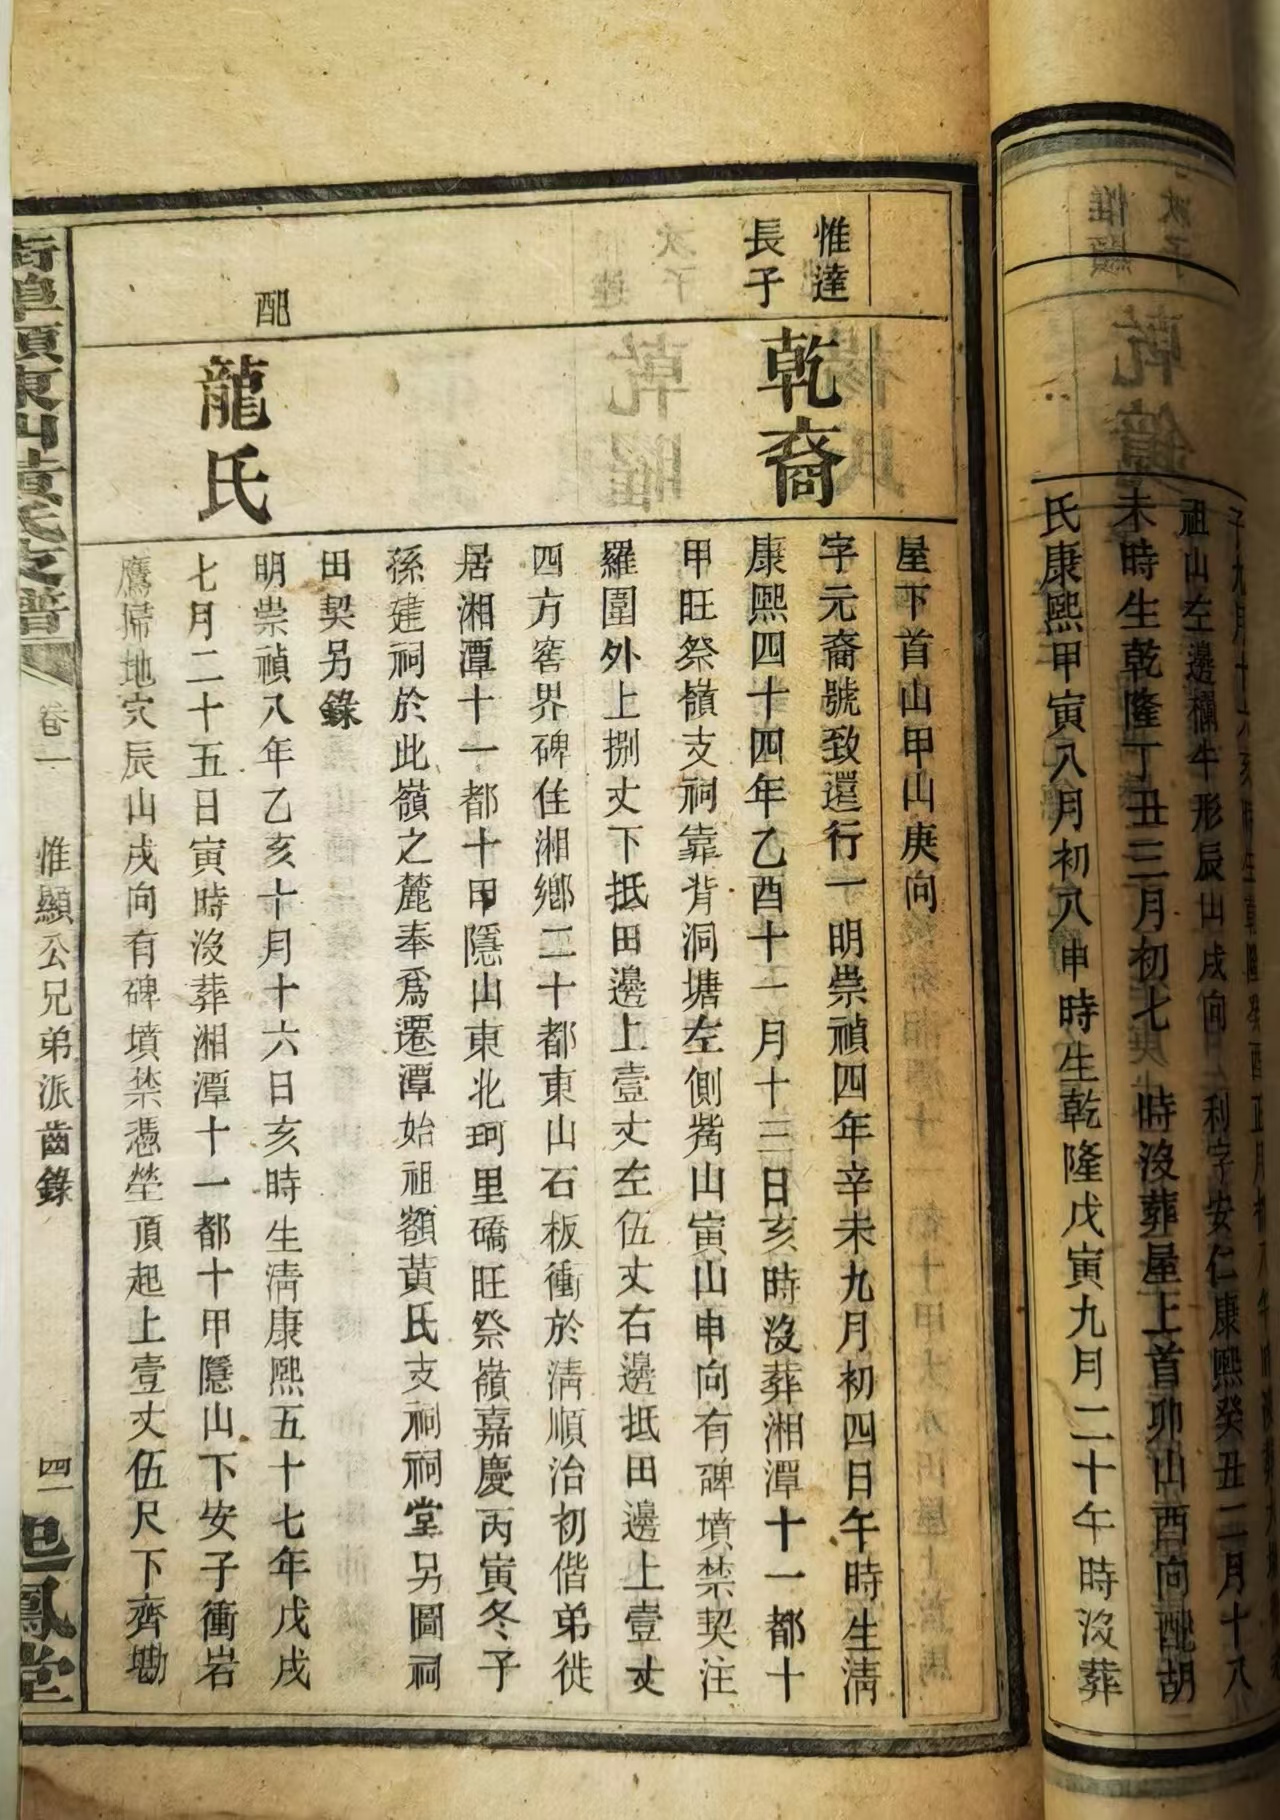 氏康熙甲寅八月初八申時生乾隆戊寅九月二十午時没葬
未時生乾隆丁丑三月初七 時没葬屋上首卯山酉向配胡
屋下首山甲山庚向
惟達
長子
乾裔
字元裔號致還行一明崇禎四年辛未九月初四日午時生清
康熙四十四年乙酉十一月十三日亥時没葬湘潭十一都十
甲旺祭嶺支祠靠背洞塘左側嘴山寅山申向有碑墳禁契注
羅圍外上捌丈下抵田邊上壹丈左伍丈右邊抵田邊上壹丈
四方窖界碑住湘鄉二十都東山石板衝於清順治初偕弟徙
居湘潭十一都十甲隱山東北珂里礄旺祭嶺嘉慶丙寅冬予
孫建祠於此嶺之麓奉爲遷潭始祖額黃氏支祠祠堂另圖祠
田契另錄
配
龍氏
明崇禎八年乙亥十月十六日亥時生清康熙五十七年戊戌
七月二十五日寅時没葬湘潭十一都十甲隱山下安子衝岩
鷹歸地穴辰山戌向有碑墳禁憑塋頂起上壹丈伍尺下齊墈
東山黃氏支譜
卷一
惟顯公兄弟派齒錄
四一
鳳堂